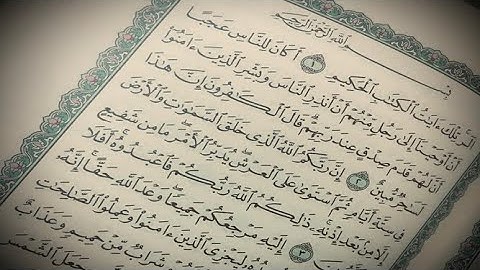 بِسْمِ ٱللَّهِ ٱلرَّحْمَٰنِ ٱلرَّحِيمِ
الٓر ۚ تِلْكَ ءَايَٰتُ ٱلْكِتَٰبِ ٱلْحَكِيمِ ١ أَكَانَ لِلنَّاسِ عَجَبًا
أَنْ أَوْحَيْنَآ إِلَىٰ رَجُلٍ مِّنْهُمْ أَنْ أَنذِرِ ٱلنَّاسَ وَبَشِّرِ ٱلَّذِينَ ءَامَنُوٓا۟
أَنَّ لَهُمْ قَدَمَ صِدْقٍ عِندَ رَبِّهِمْ ۗ قَالَ ٱلْكَٰفِرُونَ إِنَّ هَٰذَا
لَسَٰحِرٌ مُّبِينٌ ٢ إِنَّ رَبَّكُمُ ٱللَّهُ ٱلَّذِى خَلَقَ ٱلسَّمَٰوَٰتِ وَٱلْأَرْضَ
فِى سِتَّةِ أَيَّامٍ ثُمَّ ٱسْتَوَىٰ عَلَى ٱلْعَرْشِ ۖ يُدَبِّرُ ٱلْأَمْرَ ۖ مَا مِن شَفِيعٍ
إِلَّا مِنۢ بَعْدِ إِذْنِهِۦ ۚ ذَٰلِكُمُ ٱللَّهُ رَبُّكُمْ فَٱعْبُدُوهُ ۚ أَفَلَا
٣ إِلَيْهِ مَرْجِعُكُمْ جَمِيعًا ۖ وَعْدَ ٱللَّهِ حَقًّا ۚ إِنَّهُۥ
لِيَجْزِىَ ٱلَّذِينَ ءَامَنُوا۟ وَعَمِلُوا۟ ٱلصَّٰلِحَٰتِ
شَرَابٌ مِّنْ حَمِيمٍ وَعَذَابٌ
جَعَلَ ٱلشَّمْسَ